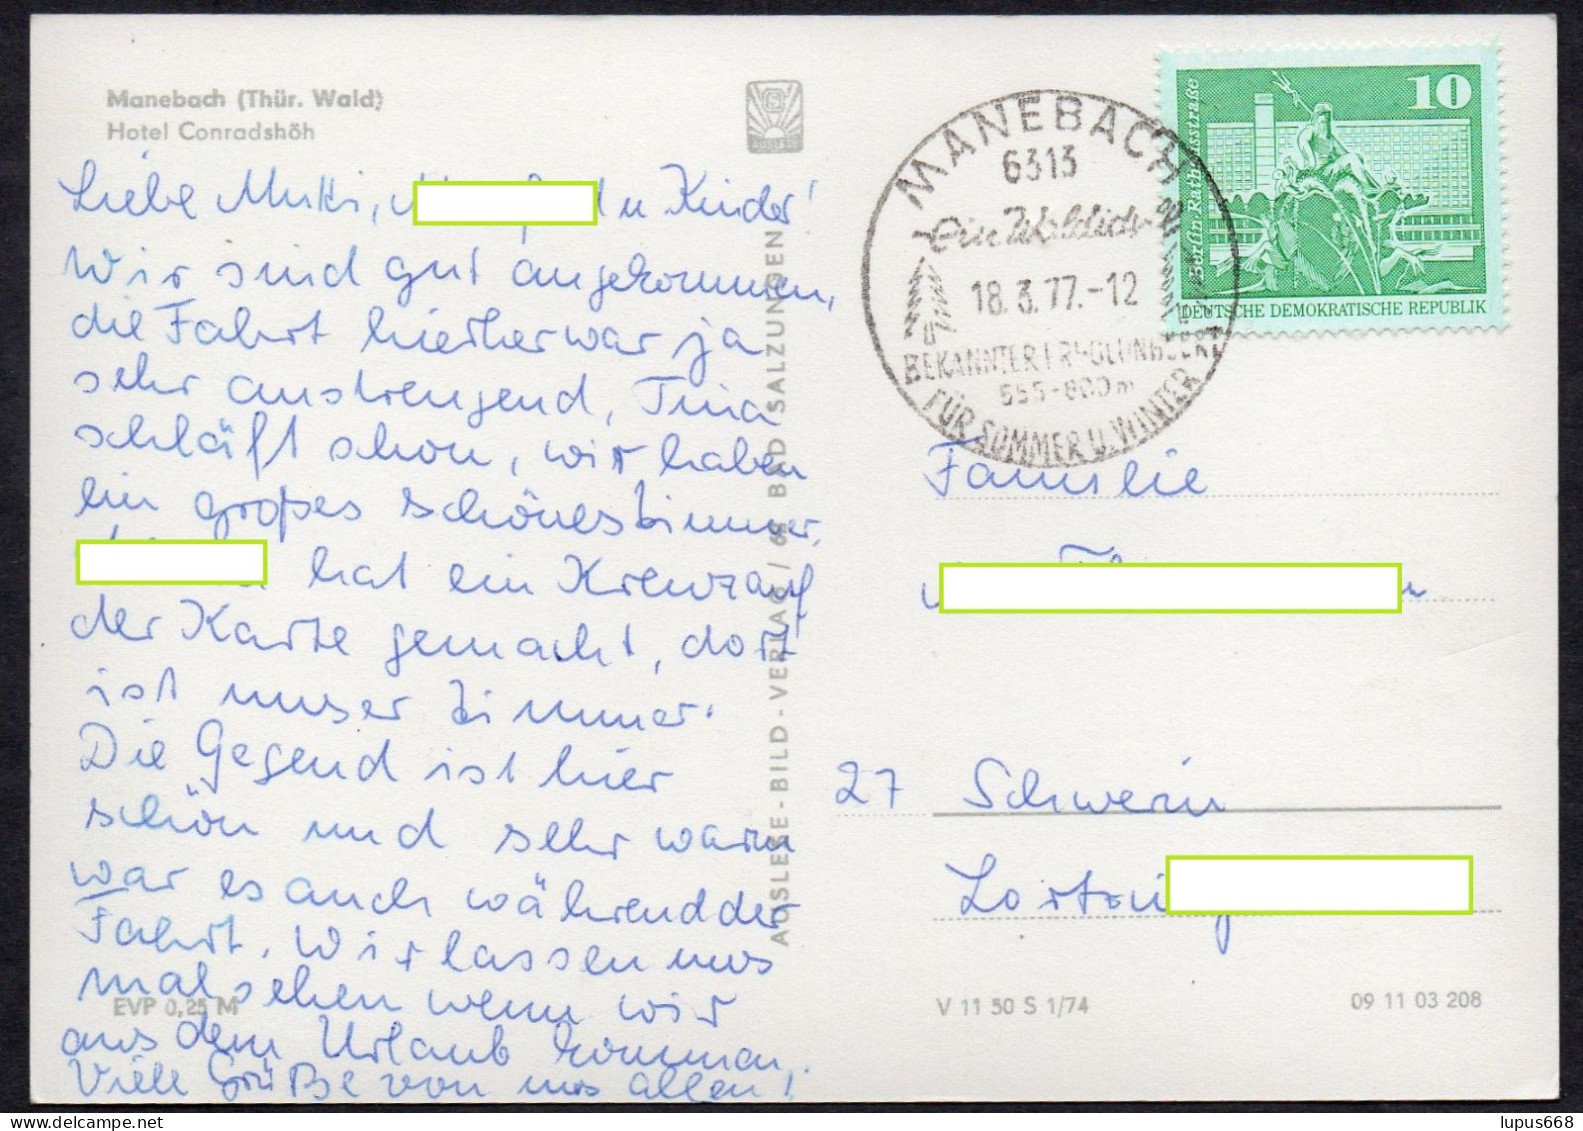 Manebach (Thür. Wald)
Hotel Conradshöh
Liebe Muki, u Kinder!
Wir sind gut angekommen,
die Fahrt hierher war ja
sehr anstrengend, Tina
schläft schon, wir haben
ein großes schönes Zimmer,
hat ein Kreuz auf
der Karte gemacht, dort
ist unser Zimmer.
Die Gegend ist hier
schön und sehr warm
war es auch während der
Fahrt. Wir lassen uns
mal sehen wenn wir
aus dem Urlaub kommen,
Viele Grüße von uns allen!
EVP 0,25 M
AUSLESE-BILD-VERLAG / 62 BAD SALZUNGEN
MANEBACH
6313
18.3.77.-12
BEKANNTER ERHOLUNGSORT
555-800m
FÜR SOMMER U. WINTER
10
Berlin-Rathausstraße
DEUTSCHE DEMOKRATISCHE REPUBLIK
Familie
27 Schwerin
V 11 50 S 1/74
09 11 03 208
lupus668